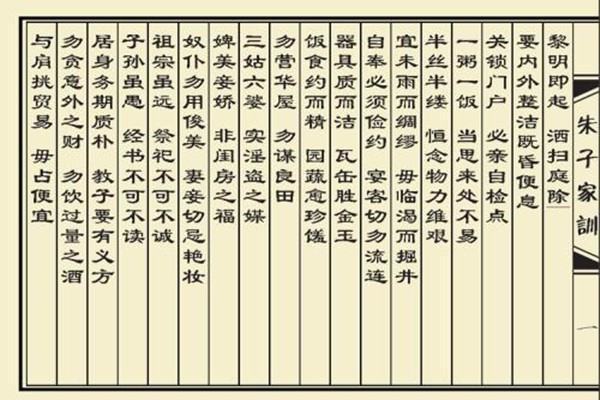 朱子家訓
一
黎明即起 洒扫庭除
要内外整洁既昏便息
关锁门户 必亲自检点
一粥一饭 当思来处不易
半丝半缕 恒念物力维艰
宜未雨而绸缪 毋临渴而掘井
自奉必须俭约 宴客切勿流连
器具质而洁 瓦缶胜金玉
饭食约而精 园蔬愈珍馐
勿营华屋 勿谋良田
三姑六婆 实淫盗之媒
婢美妾娇 非闺房之福
奴仆勿用俊美 妻妾切忌艳妆
祖宗虽远 祭祀不可不诚
子孙虽愚 经书不可不读
居身务期质朴 教子要有义方
勿贪意外之财 勿饮过量之酒
与肩挑贸易 毋占便宜